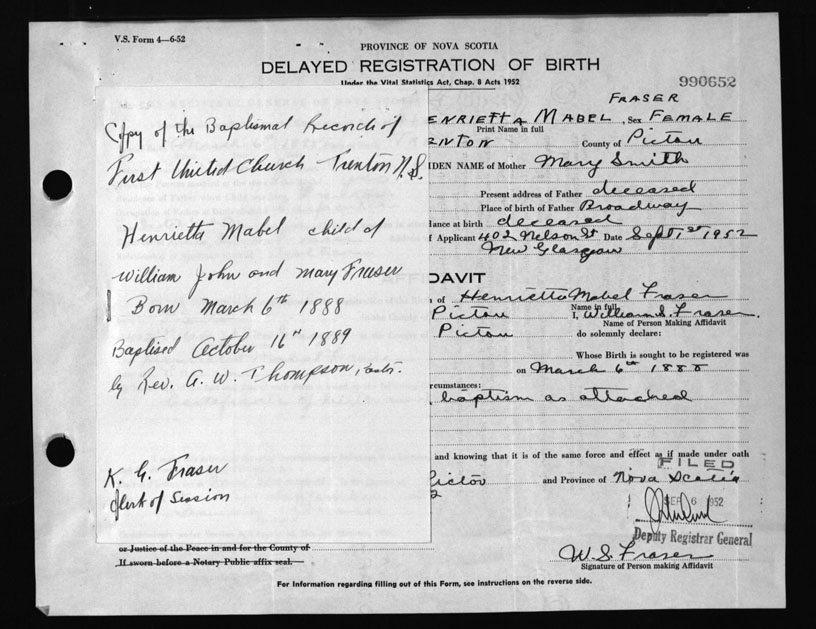 V.S. Form 4—6-52
PROVINCE OF NOVA SCOTIA
DELAYED REGISTRATION OF BIRTH
Under the Vital Statistics Act, Chap. 8 Acts 1952
990652
Copy of the Baptismal Records of
First United Church Trenton N.S.
Henrietta Mabel child of
William John and Mary Fraser
Born March 6th 1888
Baptised October 16th 1889
by Rev. A. W. Thompson,
K. G. Fraser
Clerk of Session
FRASER
ENRIETTA MABEL, Sex FEMALE
Print Name in full
ENTON County of Pictou
IDEN NAME of Mother Mary Smith
Present address of Father deceased
Place of birth of Father Broadway
dance at birth deceased
f Applicant 402 Nelson St Date Sept 1st 1952
New Glasgow
DAVIT
n of Henrietta Mabel Fraser
Name in full
Pictou I, William S. Fraser.
Name of Person Making Affidavit
Pictou do solemnly declare:
Whose Birth is sought to be registered was
on March 6th 1888
rcumstances:
baptism as attached
and knowing that it is of the same force and effect as if made under oath
FILED
Pictou and Province of Nova Scotia
2
SEP 6 1952
Deputy Registrar General
or Justice of the Peace in and for the County of
W. S. Fraser
If sworn before a Notary Public affix seal.
Signature of Person making Affidavit
For Information regarding filling out of this Form, see instructions on the reverse side.